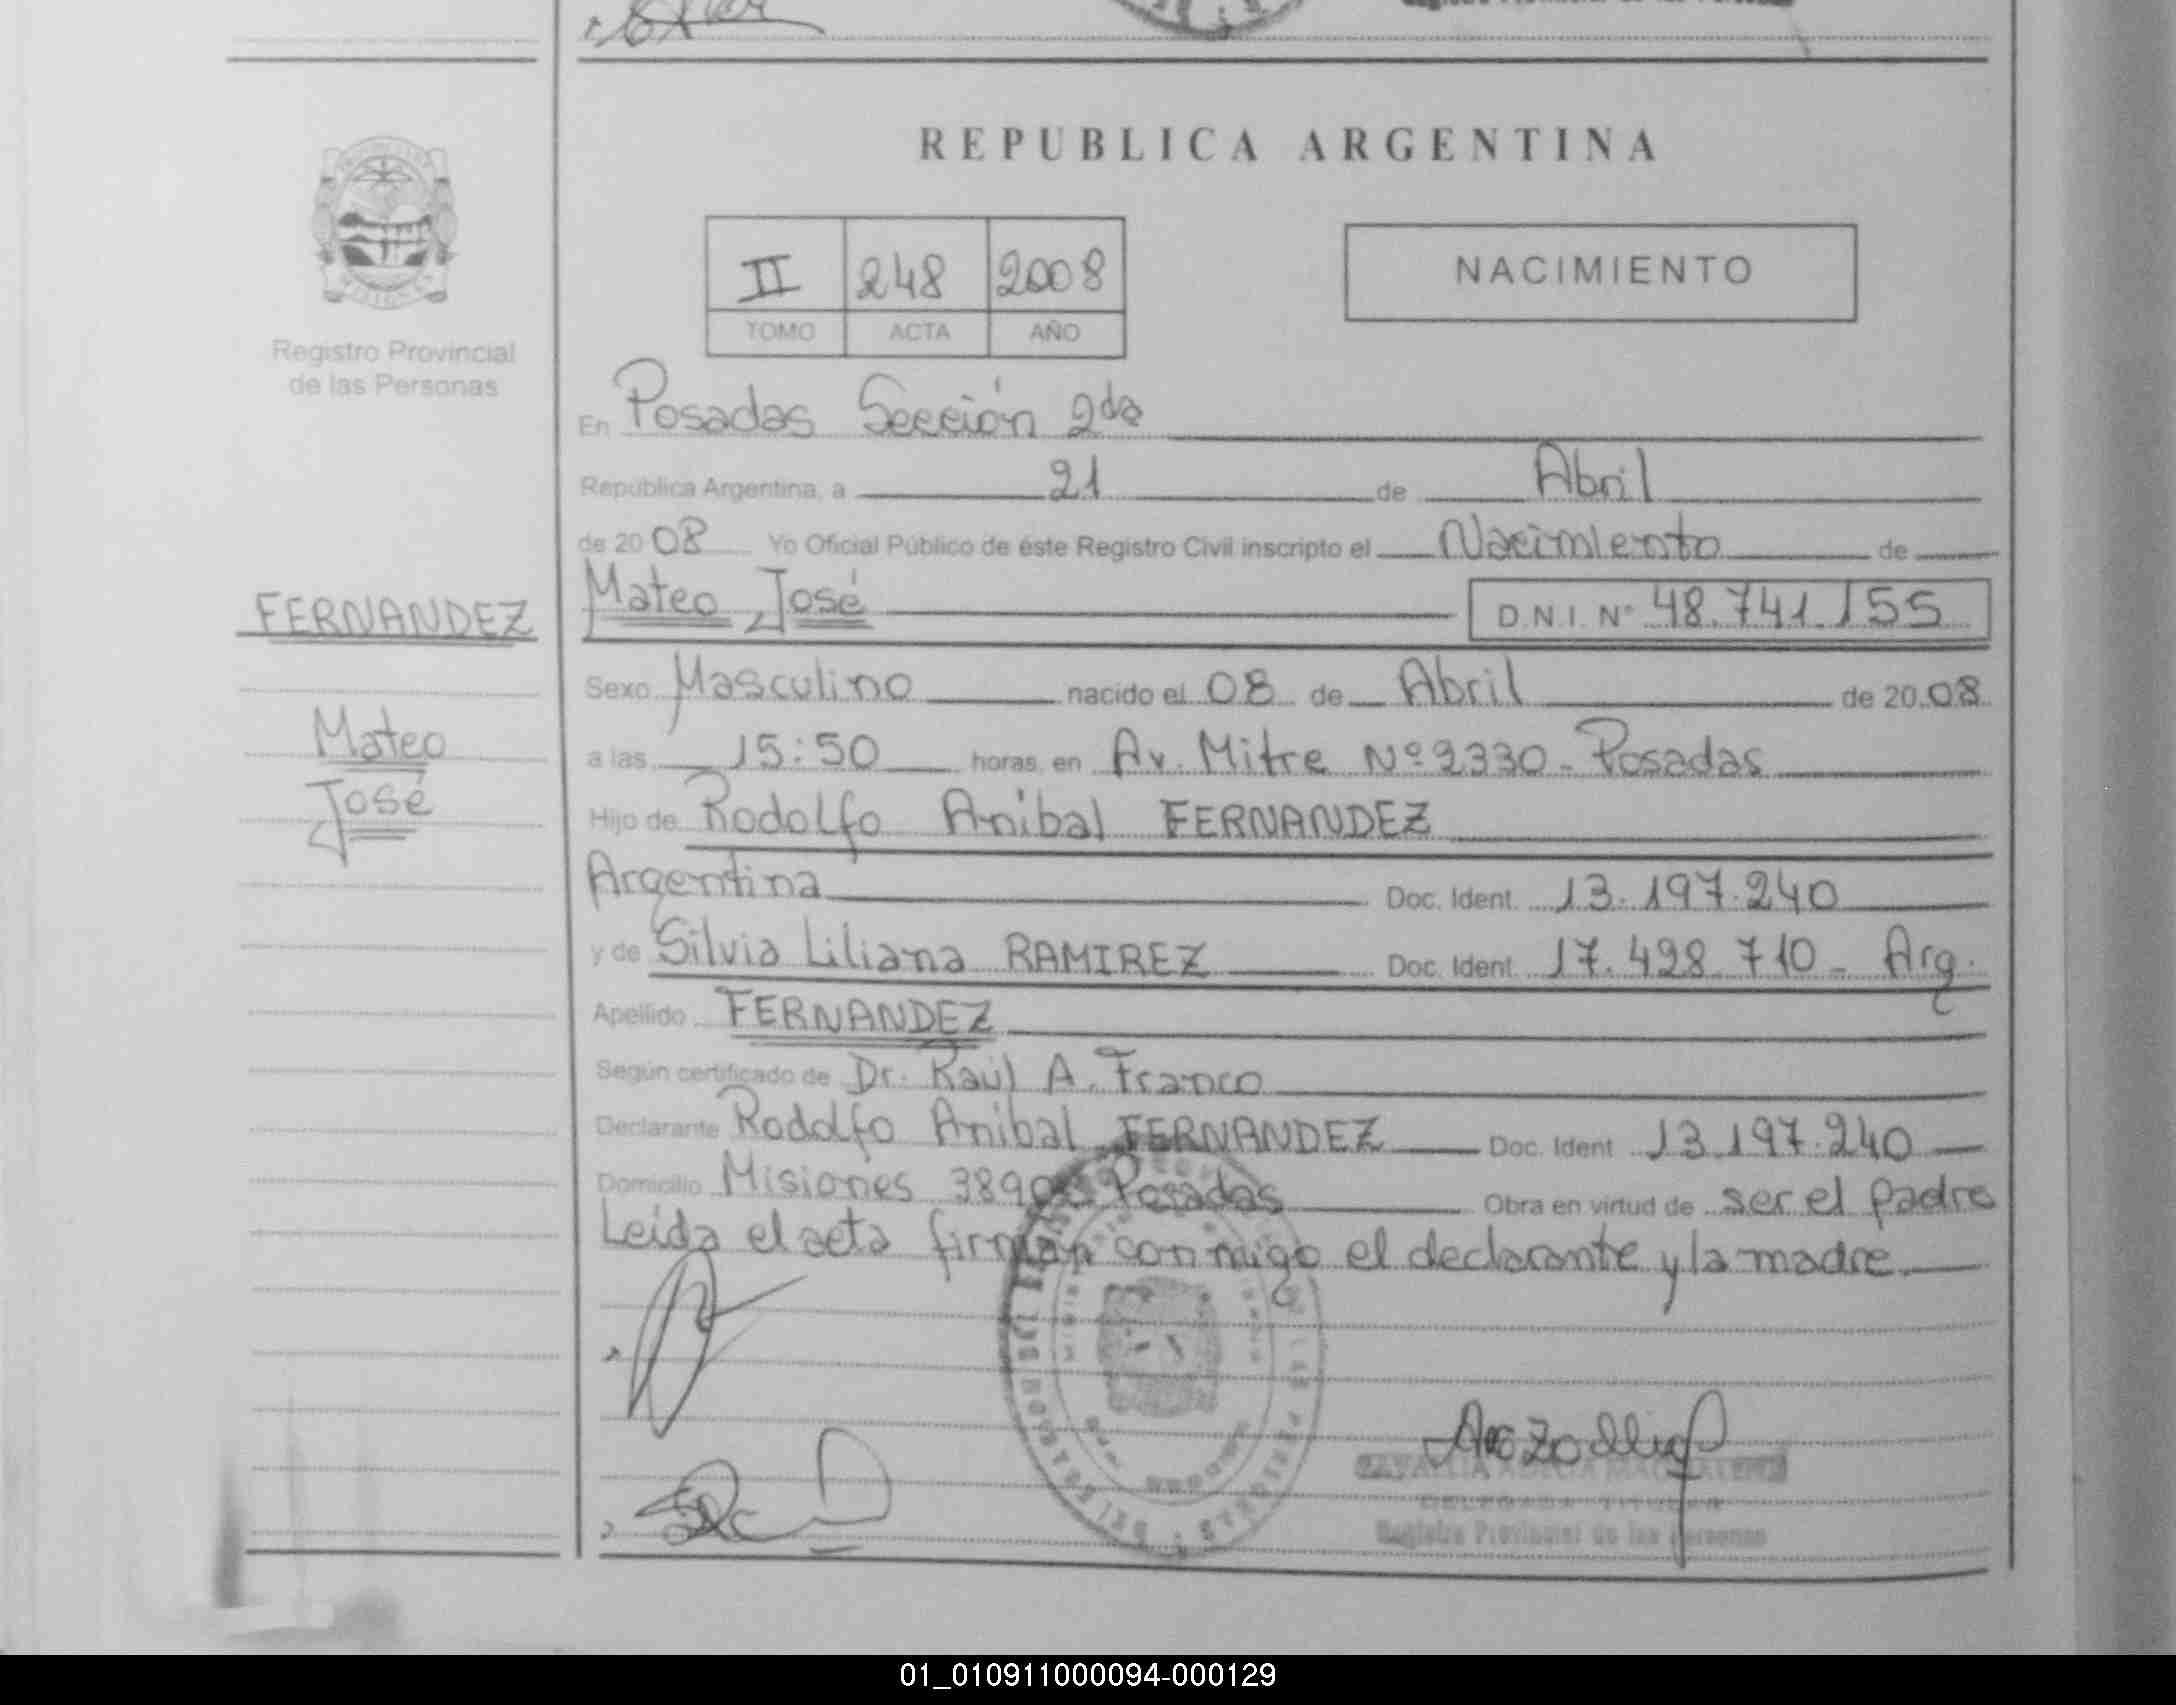 REPUBLICA ARGENTINA
II 248 2008
TOMO ACTA AÑO
NACIMIENTO
Registro Provincial
de las Personas
En Posadas Sección 2da
Republica Argentina, a 21 de Abril
de 20 08 Yo Oficial Público de éste Registro Civil inscripto el Nacimiento de
FERNANDEZ
Mateo
José
Mateo José D.N.I. Nº 48.741.155
Sexo Masculino nacido el 08 de Abril de 20 08
a las 15:50 horas, en Av. Mitre Nº 2330 - Posadas
Hijo de Rodolfo Anibal FERNANDEZ
Argentina Doc. Ident. 13.197.240
y de Silvia Liliana RAMIREZ Doc. Ident. 17.428.710 - Arg.
Apellido FERNANDEZ
Según certificado de Dr. Raúl A. Franco
Declarante Rodolfo Anibal FERNANDEZ Doc. Ident 13.197.240
Domicilio Misiones Posadas Obra en virtud de ser el padre
Leida el acta firman conmigo el declarante y la madre.
Registro Provincial de las Personas
01_010911000094-000129